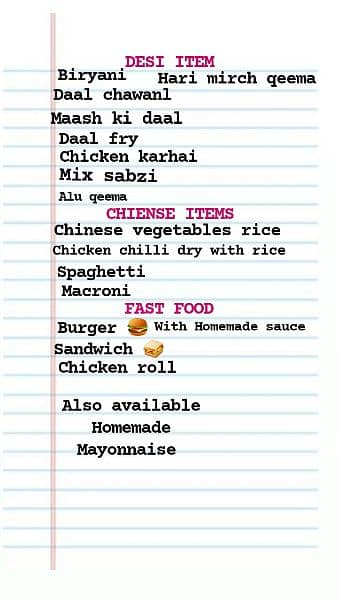 DESI ITEM
Biryani Hari mirch qeema
Daal chawanl
Maash ki daal
Daal fry
Chicken karhai
Mix sabzi
Alu qeema
CHIENSE ITEMS
Chinese vegetables rice
Chicken chilli dry with rice
Spaghetti
Macroni
FAST FOOD
Burger 🍔 With Homemade sauce
Sandwich 🥪
Chicken roll
Also available
Homemade
Mayonnaise